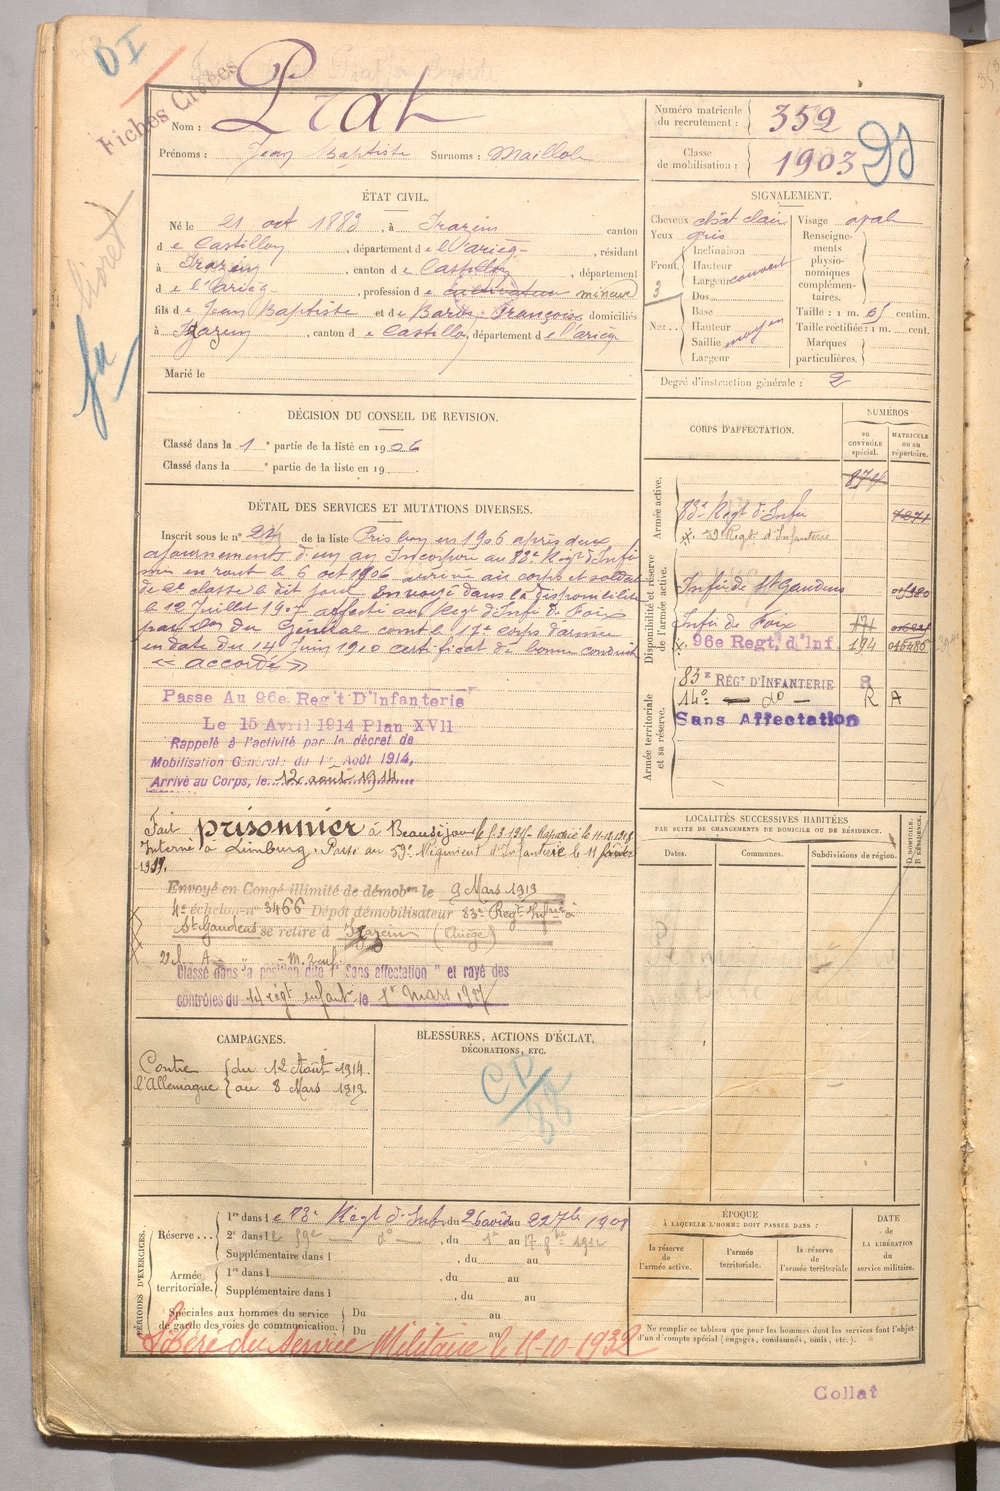 Fiches Créées
Nom : Prat
Prénoms : Jean Baptiste Surnoms : Maillol
Numéro matricule du recrutement : 352
Classe de mobilisation : 1903
ÉTAT CIVIL.
Né le 21 oct 1883, à Irazein canton
de Castillon, département de l'Ariège, résidant
à Irazein, canton de Castillon, département
de l'Ariège, profession de cultivateur mineur
fils de Jean Baptiste et de Barus Françoise domiciliés
à Irazein, canton de Castillon, département de l'ariège
Marié le
SIGNALEMENT.
Cheveux chât clair
Yeux gris
Front. Inclinaison
Hauteur
Largeur couvert
Dos
Nez. Base
Hauteur
Saillie moyen
Largeur
Visage oval
Renseignements physionomiques complémentaires.
Taille : 1 m. 65 centim.
Taille rectifiée : 1 m. cent.
Marques particulières.
Degré d'instruction générale : 2
DÉCISION DU CONSEIL DE REVISION.
Classé dans la 1e partie de la liste en 1906
Classé dans la e partie de la liste en 19
DÉTAIL DES SERVICES ET MUTATIONS DIVERSES.
Inscrit sous le n° 24 de la liste Pris bon en 1906 après deux
ajournements d'un an Incorporé au 83e Régt d'Infie
mis en route le 6 oct 1906 arrivé au corps et soldat
de 2e classe le dit jour Envoyé dans la disponibilité
le 12 Juillet 1907 affecté au Régt d'Infie de Foix
par Don du Général comt le 17e corps d'armée
en date du 14 Juin 1910 certificat de bonne conduite
"accordé"
Passe Au 96e Reg't D'Infanterie
Le 15 Avril 1914 Plan XVII
Rappelé à l'activité par le décret de
Mobilisation Générale du 1er Août 1914,
Arrivé au Corps, le 12 août 1914
Fait prisonnier à Beauséjour le 8.3.1915 Rapatrié le
Interné à Limburg. Passé au 59e Régiment d'Infanterie le 11 février
1919.
Envoyé en Congé illimité de démobon le 9 Mars 1919
4e échelon n° 3466 Dépôt démobilisateur 83e Régt Infrie à
St Gaudens se retire à Irazein (Ariège)
Classé dans la position dite " Sans affectation " et rayé des
contrôles du 14 régt infantie le 1er mars 1927
CORPS D'AFFECTATION.
NUMÉROS
au CONTRÔLE spécial.
MATRICULE ou au répertoire.
Armée active.
874
83e Régt d'Infie
7271
59 Régt d'Infanterie
Disponibilité et réserve de l'armée active.
Infie de St Gaudens
Infie de Foix 171
96e Regt, d'Inf. 194
Armée territoriale et sa réserve.
83E RÉGT D'INFANTERIE
14e — do — R A
Sans Affectation
LOCALITÉS SUCCESSIVES HABITÉES
PAR SUITE DE CHANGEMENTS DE DOMICILE OU DE RÉSIDENCE.
Dates.
Communes.
Subdivisions de région.
D. DOMICILE. R. RÉSIDENCE.
CAMPAGNES.
Contre l'Allemagne { du 12 Août 1914.
au 8 Mars 1919.
BLESSURES, ACTIONS D'ÉCLAT,
DÉCORATIONS, ETC.
PÉRIODES D'EXERCICES.
Réserve... 1re dans le 83e Régt d'Inf. du 26 août au 22 7bre 1908
2e dans le 59e — do —, du 1er au 17 1912
Supplémentaire dans l , du au
Armée territoriale. 1re dans l , du au
Supplémentaire dans l , du au
Spéciales aux hommes du service de garde des voies de communication. Du au
Du au
Libéré du Service Militaire le 15-10-1932
EPOQUE
À LAQUELLE L'HOMME DOIT PASSER DANS :
la réserve de l'armée active.
l'armée territoriale.
la réserve de l'armée territoriale
DATE de LA LIBÉRATION du service militaire.
Ne remplir ce tableau que pour les hommes dont les services font l'objet
d'un décompte spécial (engagés, condamnés, omis, etc.).
Collat